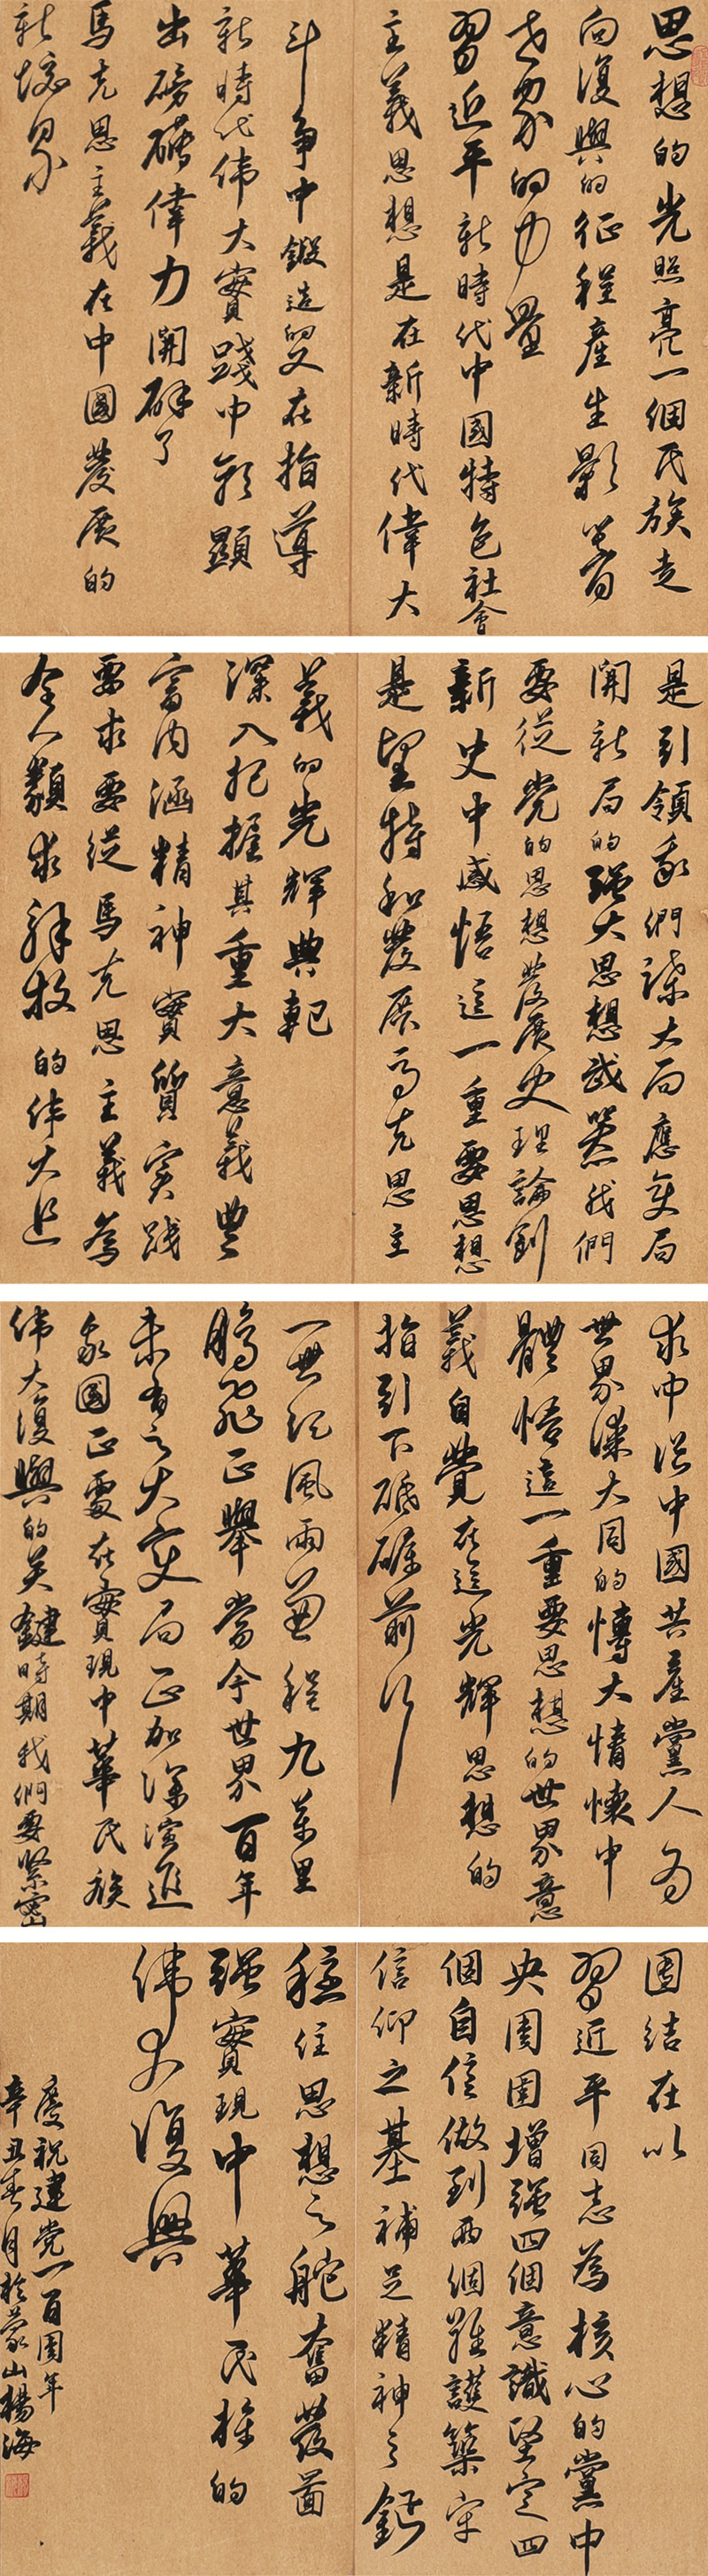 思想的光照亮一個民族走
向復興的征程產生影響
世界的力量
習近平新時代中國特色社會
主義思想是在新時代偉大
斗争中鍛造的又在指導
新時代伟大實踐中彰顯
出磅礴偉力開辟了
馬克思主義在中國發展的
新境界
是引領我們謀大局應變局
開新局的强大思想武器我們
要從党的思想發展史理論創
新史中感悟這一重要思想
是堅持和發展马克思主
義的光輝典範
深入把握其重大意義豐
富内涵精神實質实践
要求要從馬克思主義為
全人類求解放的伟大追
求中從中國共產黨人为
世界谋大同的博大情懷中
體悟這一重要思想的世界意
義自覺在這光輝思想的
指引下砥礪前行
一世纪風雨兼程九萬里
鵬飛正舉當今世界百年
未有之大变局正加深演進
我國正處在實現中華民族
伟大復興的关鍵時期我們要緊密
團結在以
習近平同志為核心的黨中
央周圍增强四個意識堅定四
個自信做到两個維護築牢
信仰之基補足精神之鈣
穩住思想之舵奮發圖
强實現中華民族的
伟大復興
慶祝建党一百周年
辛丑春月於蒙山楊海